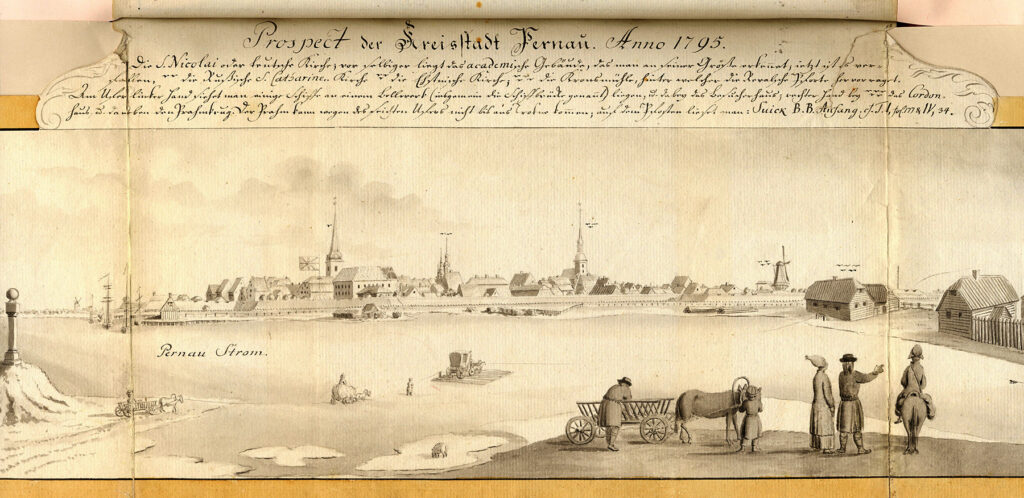 Prospect der Kreisstadt Pernau. Anno 1795.
Die S. Nicolai oder teutsche Kirche; vor selbiger liegt das academische Gebäude, das man an seiner Größe erkennt, jetzt ist es ver-
fallen, die Russische S. Catharinen Kirch die Ehstnische Kirche, die Kronsmühle, hinter welcher die Revalsche Pforte hervorragt.
Am Ufer linker Hand siehet man einige Schiffe an einem Bollwerk (insgemein die Schiffbrücke genannt) liegen, u. dabey das Besucherhaus; rechter Hand das Cordon-
haus, u. daneben den Prahmkrug. Der Prahm kann wegen des seichten Ufers nicht bis ans trockne kommen; auf dem Pfosten lieset man:
Pernau Strom.